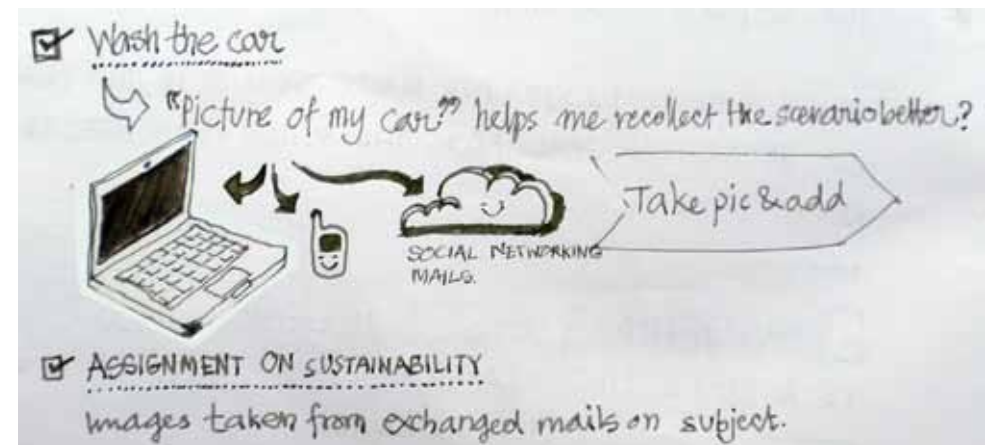 Wash the car
"Picture of my car" helps me recollect the scenario better?
Take pic & add
SOCIAL NETWORKING
MAILS.
ASSIGNMENT ON SUSTAINABILITY
Images taken from exchanged mails on subject.